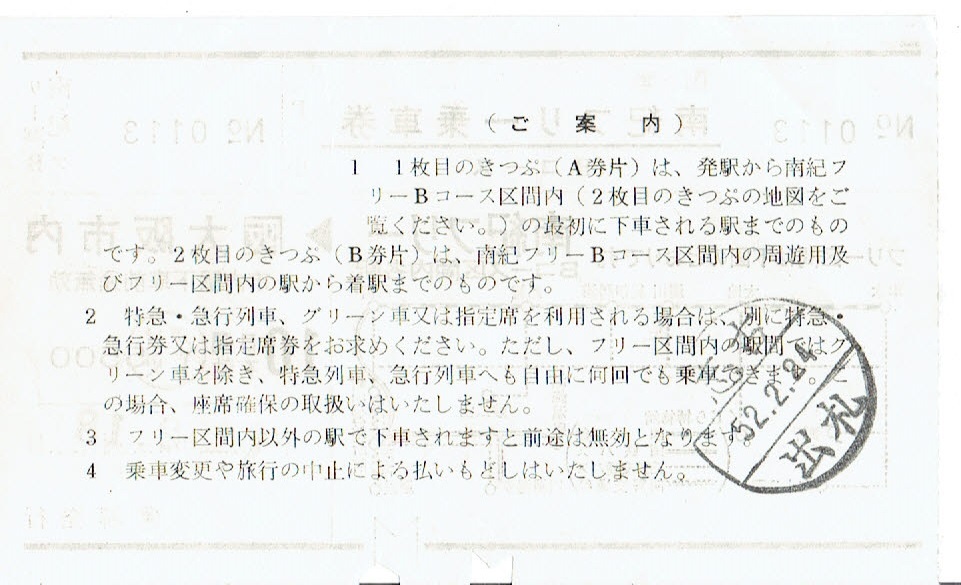 （ご案内）
1　1枚目のきっぷ（A券片）は、発駅から南紀フ
リーBコース区間内（2枚目のきっぷの地図をご
覧ください。）の最初に下車される駅までのもの
です。2枚目のきっぷ（B券片）は、南紀フリーBコース区間内の周遊用及
びフリー区間内の駅から着駅までのものです。
2　特急・急行列車、グリーン車又は指定席を利用される場合は、別に特急・
急行券又は指定席券をお求めください。ただし、フリー区間内の駅間ではグ
リーン車を除き、特急列車、急行列車へも自由に何回でも乗車できます。こ
の場合、座席確保の取扱いはいたしません。
3　フリー区間内以外の駅で下車されますと前途は無効となります。
4　乗車変更や旅行の中止による払いもどしはいたしません。
52.2.24
出札
南紀フリー乗車券
№ 0113
№ 0113
大阪市内